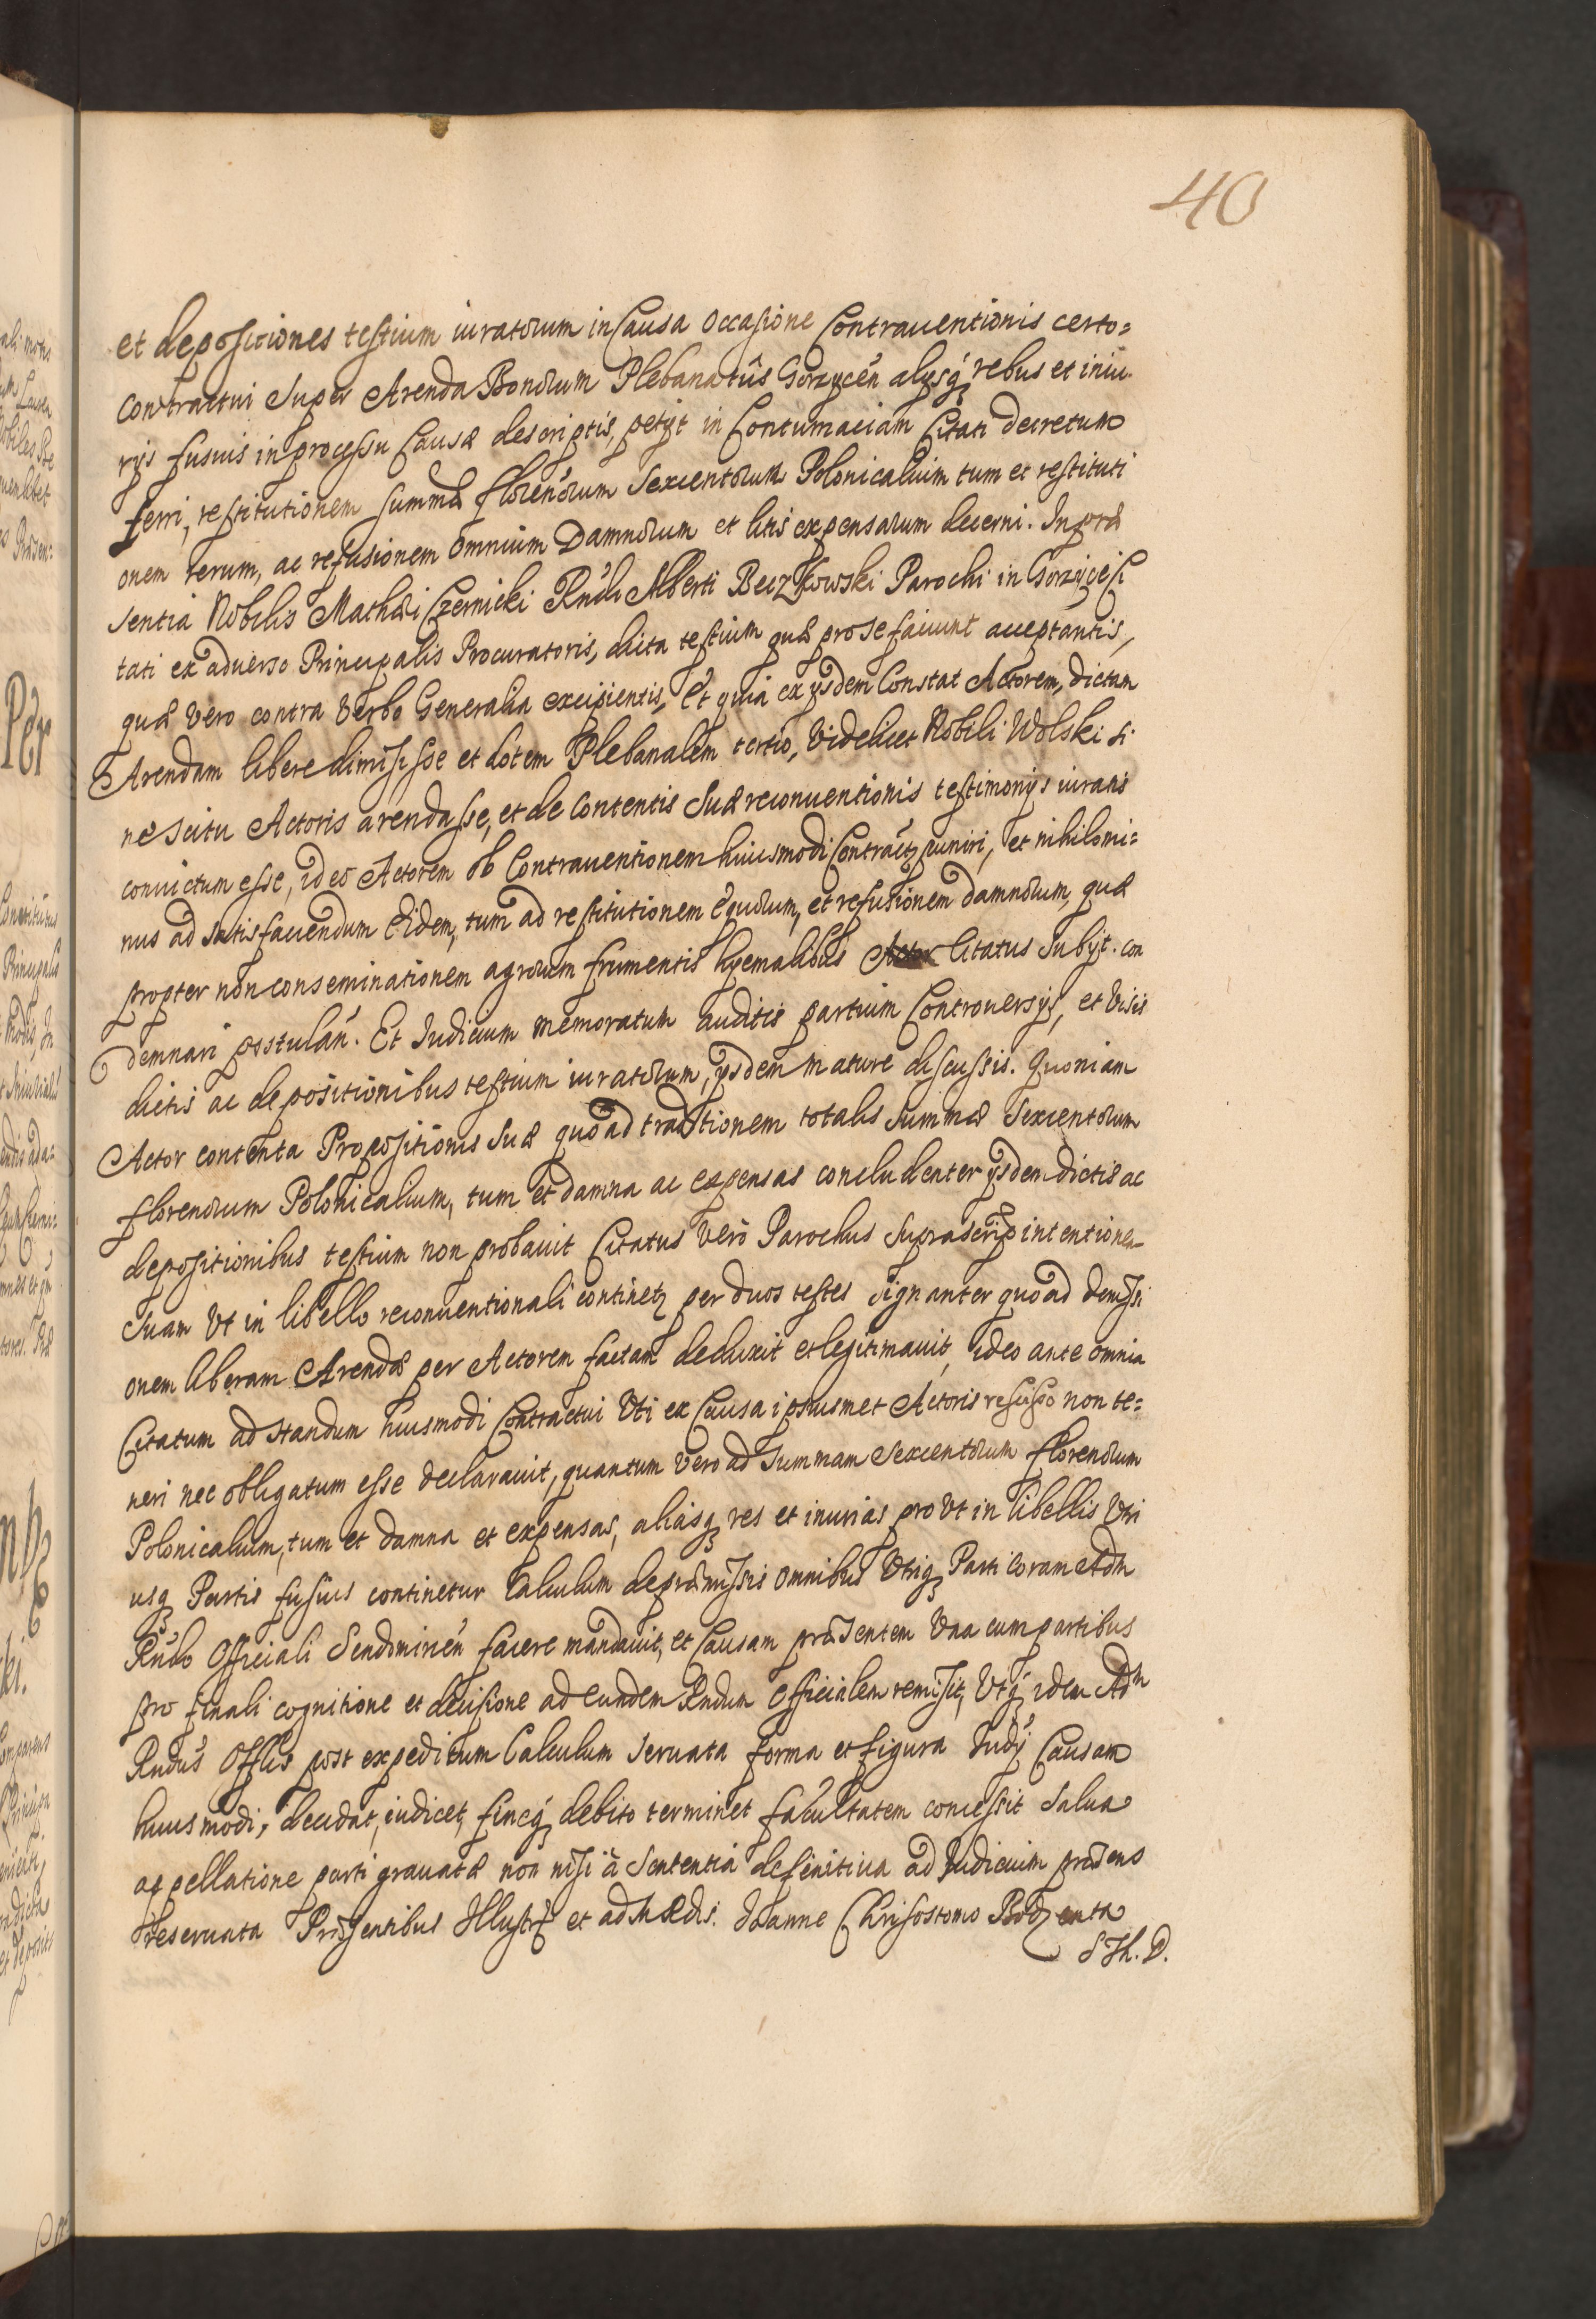 40
et depositiones testium iuratorum in Causa Occasione Contrauentionis certo=
Contractui Super Arenda Bonorum Plebanatûs Gorzycen̄ alysq́ rebus et iniu-
ryis fusius in processu Causæ descriptis, petyt in Contumaciam Citati decretum
ferri, restitutionem summæ florenorum Sexcentorum Polonicalium tum et restituti
onem rerum, ac refusionem omnium Damnorum et litis expensarum decerni. In præ
sentia Nobilis Mathæi Czernicki Rńdi Alberti Beczkowski Parochi in Gorzyce Ci
tati ex aduerso Principalis Procuratoris, dicta testium quæ pro se faciunt acceptantis,
quæ Vero contra Verbo Generalia excipientis, Et quia ex ysdem Constat Actorem, dictam
Arendam libere dimisisse et dotem Plebanalem tertio, Videlicet Nobili Wolski si
ne Scitu Actoris arendasse, et de Contentis Suæ reconuentionis testimonys iuratis
conuictum esse, ideo Actorem ob Contrauentionem huiusmodi Contractꝫ puniri, et nihilomi=
nus ad satisfaciendum Eidem, tum ad restitutionem Equorum, et refusionem damnorum, quæ
propter non conseminationem agrorum frumentis hyemalibus Actor Citatus Subyt. con
demnari postulan̄. Et Iudicium memoratum auditis partium Controuersys, et Visis
dictis ac depositionibus testium iuratorum, ysdem mature discussis. Quoniam
Actor contenta Propositionis Suæ quoad traditionem totalis Summæ Sexcentorum
florenorum Polonicalium, tum et damna ac expensas concludenter ysdem dictis ac
depositionibus testium non probauit Citatus Vero Parochus Suprascrip intentionem
Suam Vt in libello reconuentionali continetꝫ per duos testes signanter quoad demissi
onem liberam Arendæ per Actorem factam deduxit et legitimauit, ideo ante omnia
Citatum ad standum huiusmodi Contractui Vti ex Causa ipsiusmet Actoris rescisso non te=
neri nec obligatum esse declarauit, quantum Vero ad Summam Sexcentorum florenorum
Polonicalium, tum et damna et expensas, aliasqꝫ res et iniurias pro Vt in libellis Vtri
usqꝫ Partis fusius continetur Calculum de præmissis omnibus Vtriqꝫ Parti Coram Adm
Rńdo Officiali Sendomirien̄ facere mandauit, et Causam præsentem Vna cum partibus
pro finali cognitione et decisione ad eundem Rndum Officialem remisit, Vtq́ idem Adm
Rndus Offlis post expeditum Calculum Seruata forma et figura Iudy Causam
huiusmodi, decidat, iudicet, fineq́ꝫ debito terminet facultatem concessit Salua
appellatione parti grauatæ non nisi à Sententia definitiua ad Iudicium præsens
reseruata Præsentibus Illustr̄ et adm Rdis. Joanne Chrisostomo Bodzenta
S Th. D.